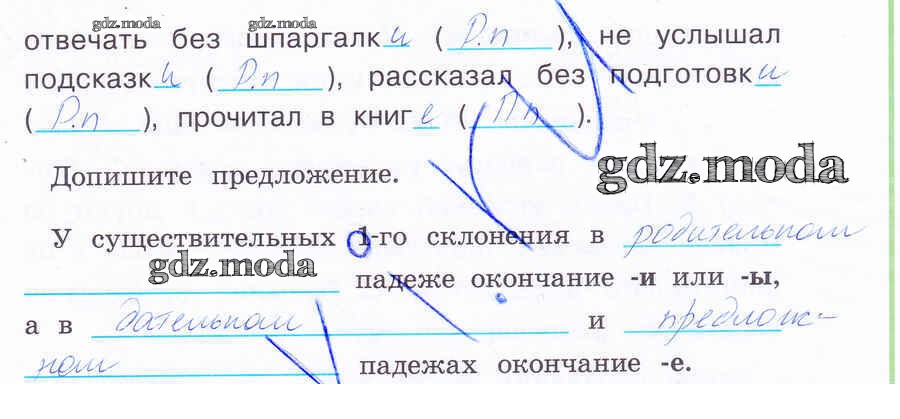 gdz.moda gdz.moda
отвечать без шпаргалки (Р.п), не услышал
подсказки (Р.п), рассказал без подготовки
(Р.п), прочитал в книге (Пп).
Допишите предложение.
gdz.moda
У существительных 1-го склонения в родительном
gdz.moda
падеже окончание -и или -ы,
а в дательном и предлож-
ном падежах окончание -е.